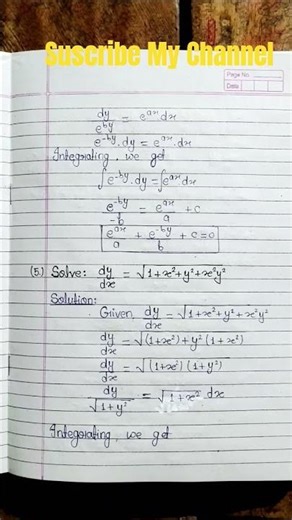 Suscribe My Channel
Page No.
Date
dy/e^by = e^ax dx
e^-by . dy = e^ax . dx
Integrating, we get
∫e^-by . dy = ∫e^ax dx
e^-by/-b = e^ax/a + c
e^ax/a + e^-by/b + c = 0
(5.) Solve: dy/dx = √1+x²+y²+x²y²
Solution:
Given, dy/dx = √1+x²+y²+x²y²
dy/dx = √(1+x²)+y²(1+x²)
dy/dx = √(1+x²)(1+y²)
dy/√1+y² = √1+x² dx
Integrating, we get